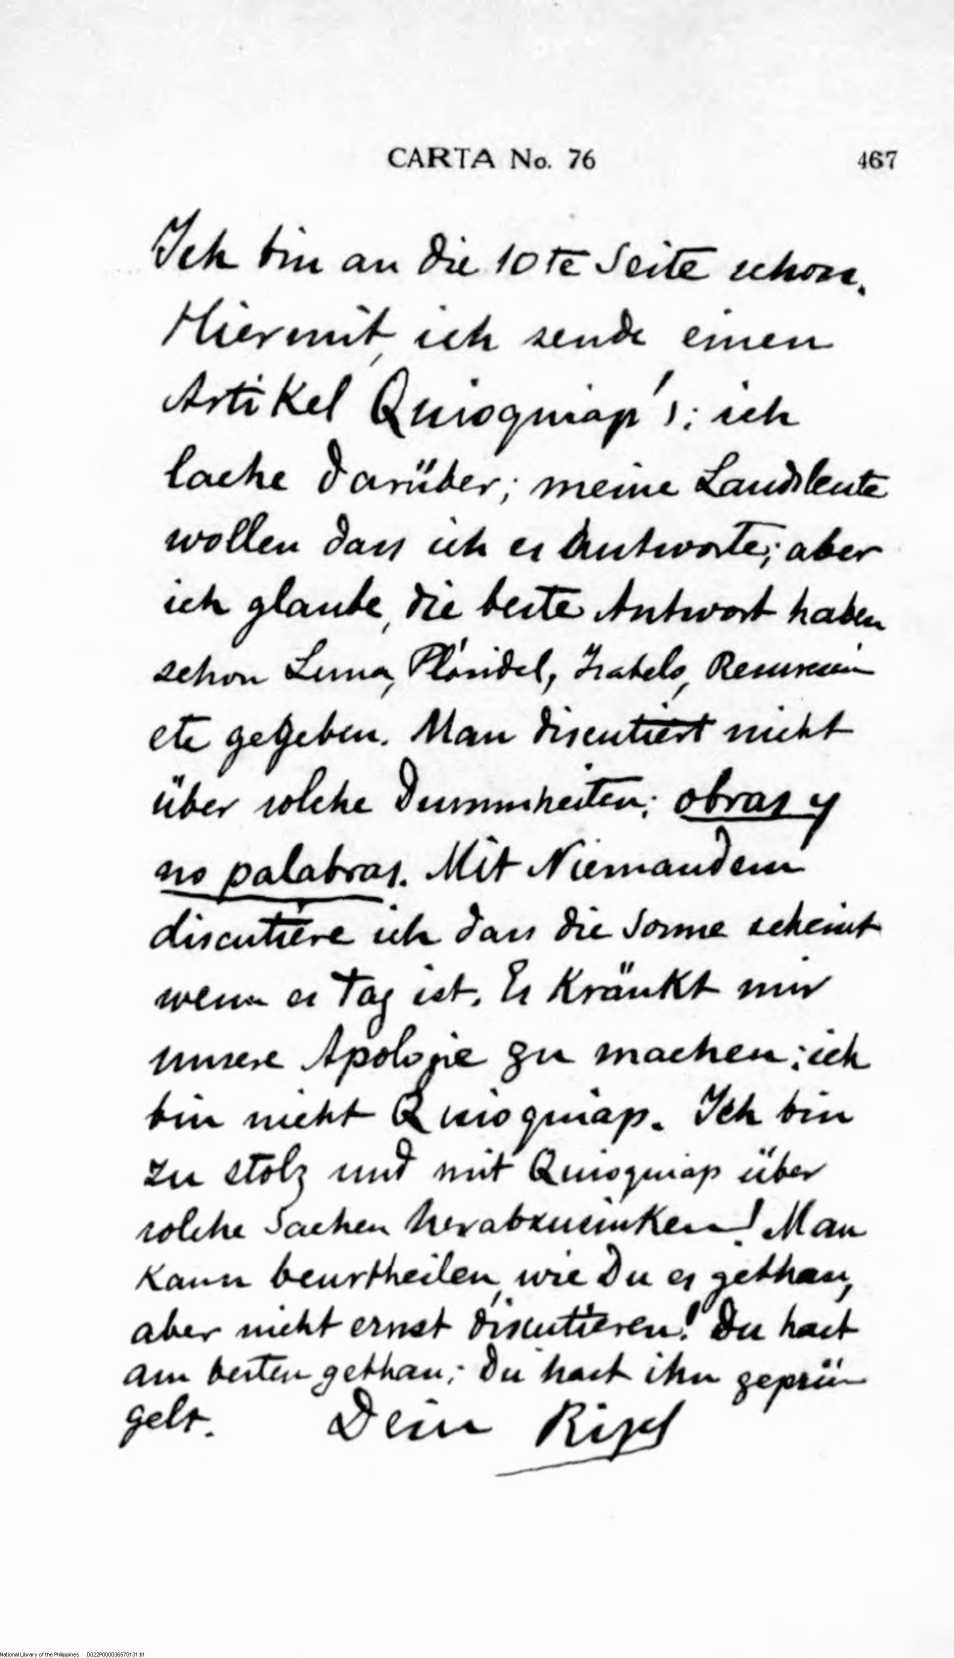 CARTA No. 76 467
Ich bin an die 10te Seite schon.
Hiermit, ich sende einen
Artikel Quioquiap's: ich
lache darüber; meine Landsleute
wollen dass ich es Antworte; aber
ich glaube, die beste Antwort haben
schon Luna, Pláridel, Isabelo,
etc gegeben. Man discutiert nicht
über solche Dummheiten: obras y
no palabras. Mit Niemandem
discutiere ich dass die Sonne scheint
wenn es Tag ist. Es Kränkt mir
unsere Apologie zu machen: ich
bin nicht Quioquiap. Ich bin
zu stolz und mit Quioquiap über
solche Sachen herabzusinken! Man
kann beurtheilen, wie Du es gethan,
aber nicht ernst discutieren! Du hast
am besten gethan: Du hast ihn geprü-
gelt. Dein Rizal
National Library of the Philippines